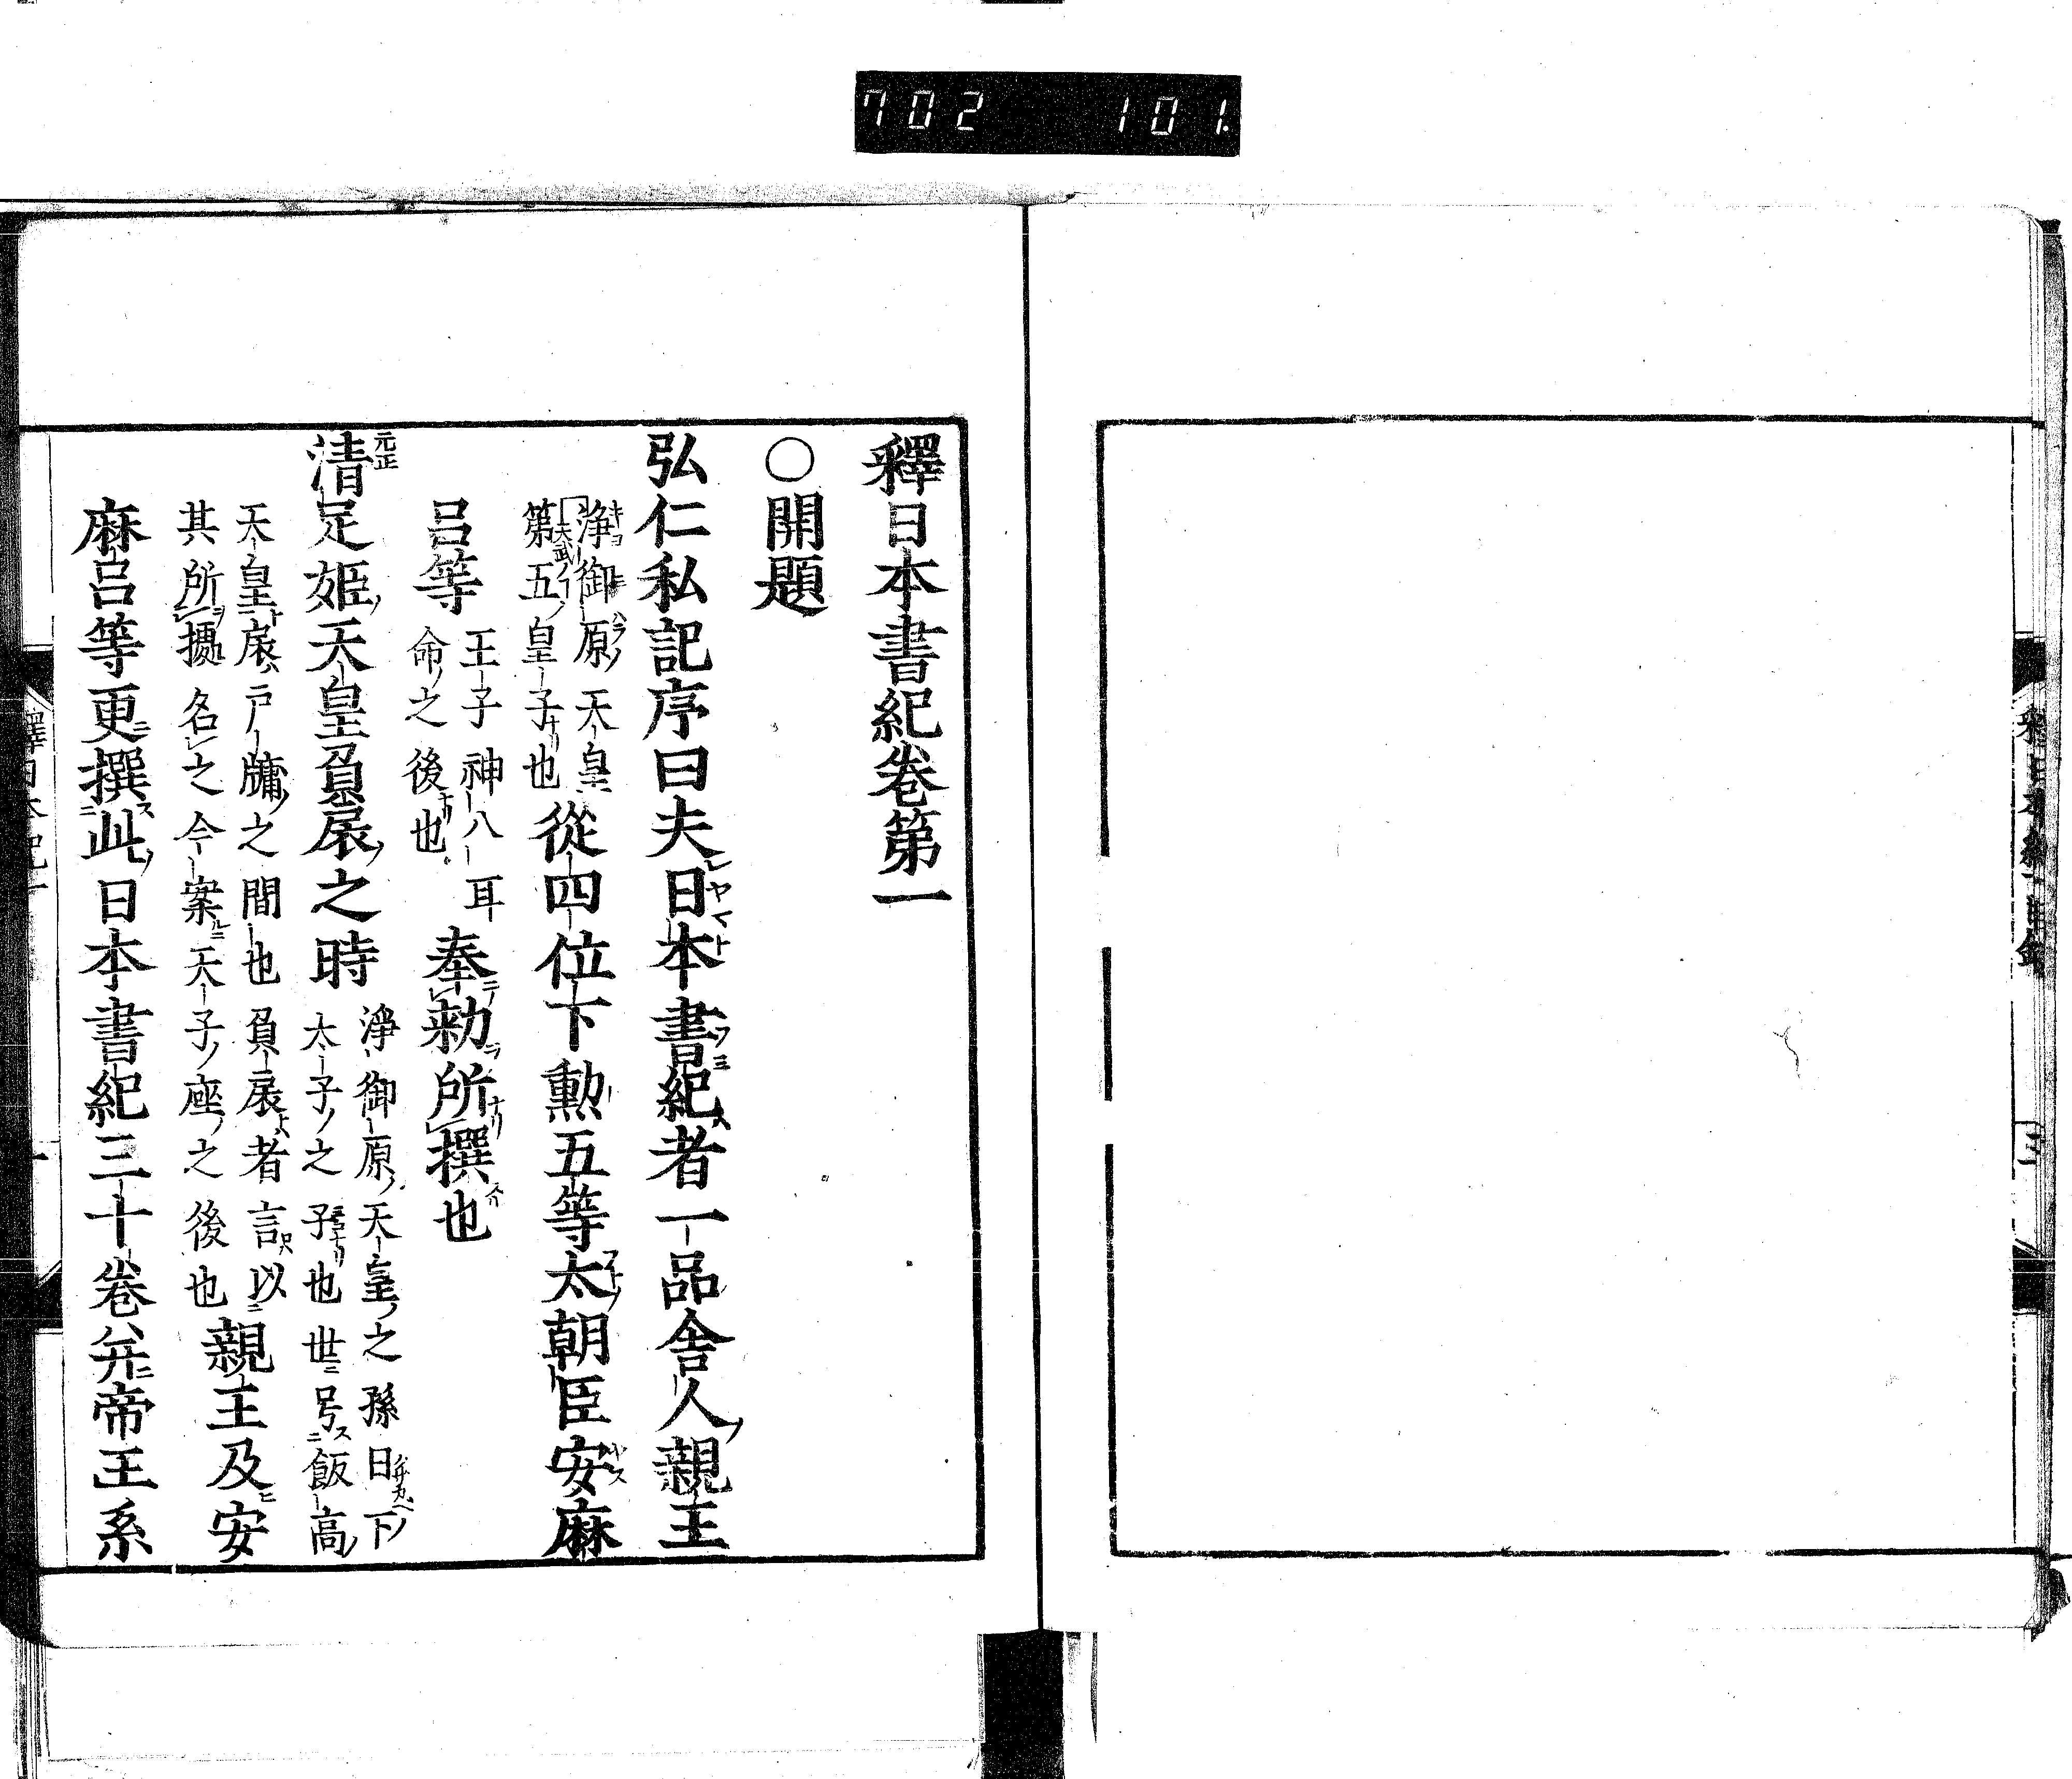 702 101.
釋日本書紀卷第一
○開題
弘仁私記序曰夫日本書紀者一品舎人親王
淨御原天皇
第五皇子也
從四位下勲五等太朝臣安麻
呂等
王子神八耳
命之後也
奉勅所撰也
清足姫天皇負扆之時
淨御原天皇之孫日下
太子之子也世号飯高
天皇扆戸牖之間也負扆者言以
其所㨿名之今案天子座之後也
親王及安
麻呂等更撰此日本書紀三十卷并帝王系